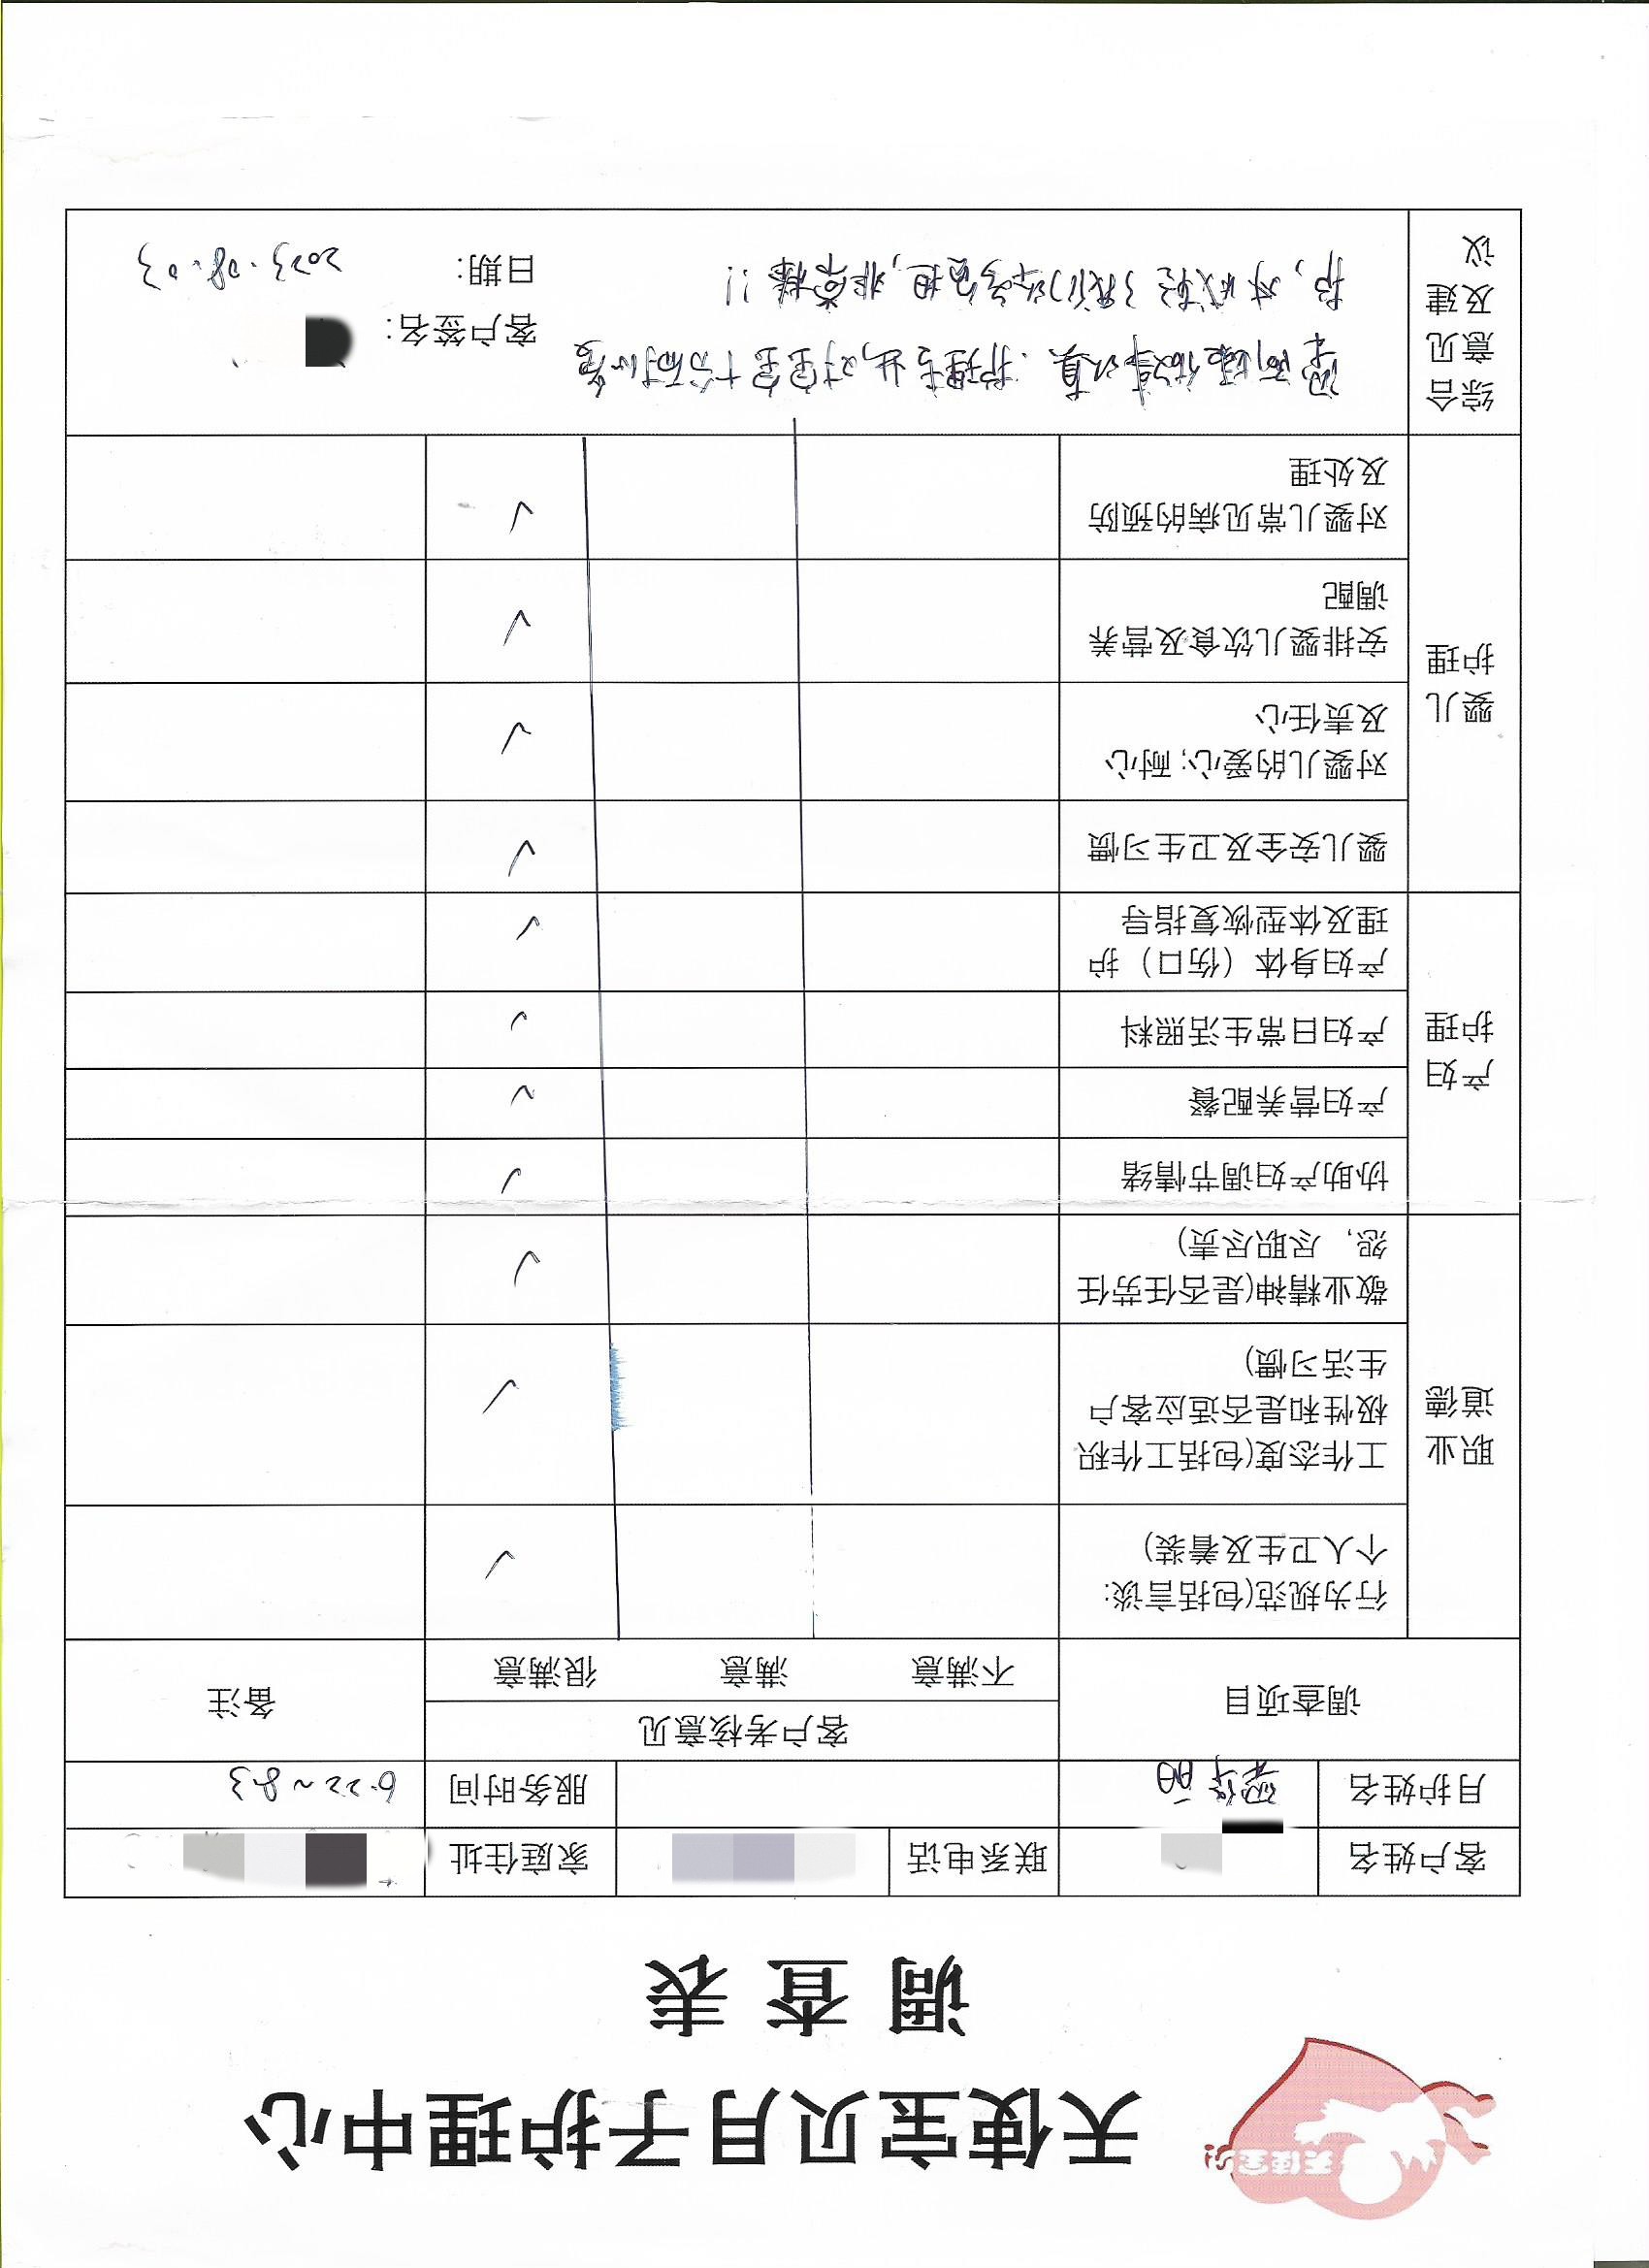 天使宝贝
天使宝贝月子护理中心
调查表
客户姓名 联系电话 家庭住址
月护姓名 服务时间 6.22~8.3
调查项目 客户考核意见 备注
不满意 满意 很满意
职业
道德
行为规范(包括言谈:
个人卫生及着装)
✓
工作态度(包括工作积
极性和是否适应客户
生活习惯)
✓
敬业精神(是否任劳任
怨, 尽职尽责)
✓
产妇
护理
协助产妇调节情绪
✓
产妇营养配餐
✓
产妇日常生活照料
✓
产妇身体(伤口)护
理及体型恢复指导
✓
婴儿
护理
婴儿安全及卫生习惯
✓
对婴儿的爱心; 耐心
及责任心
✓
安排婴儿饮食及营养
调配
✓
对婴儿常见病的预防
及处理
✓
综合
意见
及建
议
梁阿姨做事认真,护理专业,对宝宝十分耐心爱
护,减轻了我们许多负担,非常棒!!
客户签名:
日期: 2023.08.03